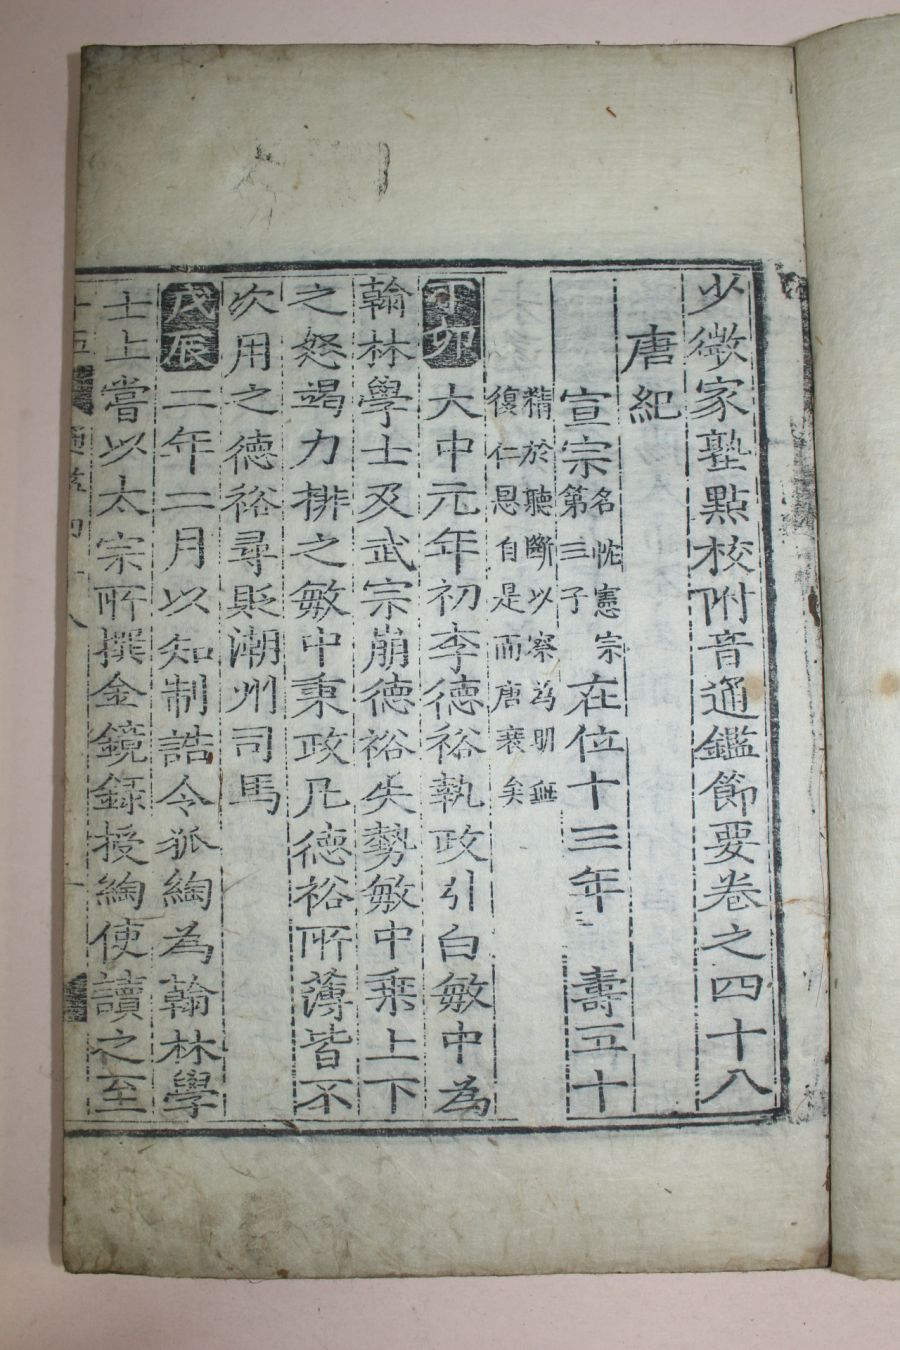 少微家塾點校附音通鑑節要卷之四十八
唐紀
宣宗
名忱憲宗
第三子
在位十三年 壽五十
精於聽斷以察為明無
復仁恩自是而唐衰矣
丁卯大中元年初李德裕執政引白敏中為
翰林學士及武宗崩德裕失勢敏中乘上下
之怒竭力排之敏中秉政凡德裕所薄皆不
次用之德裕尋貶潮州司馬
戊辰二年二月以知制誥令狐綯為翰林學
士上嘗以太宗所撰金鏡録授綯使讀之至